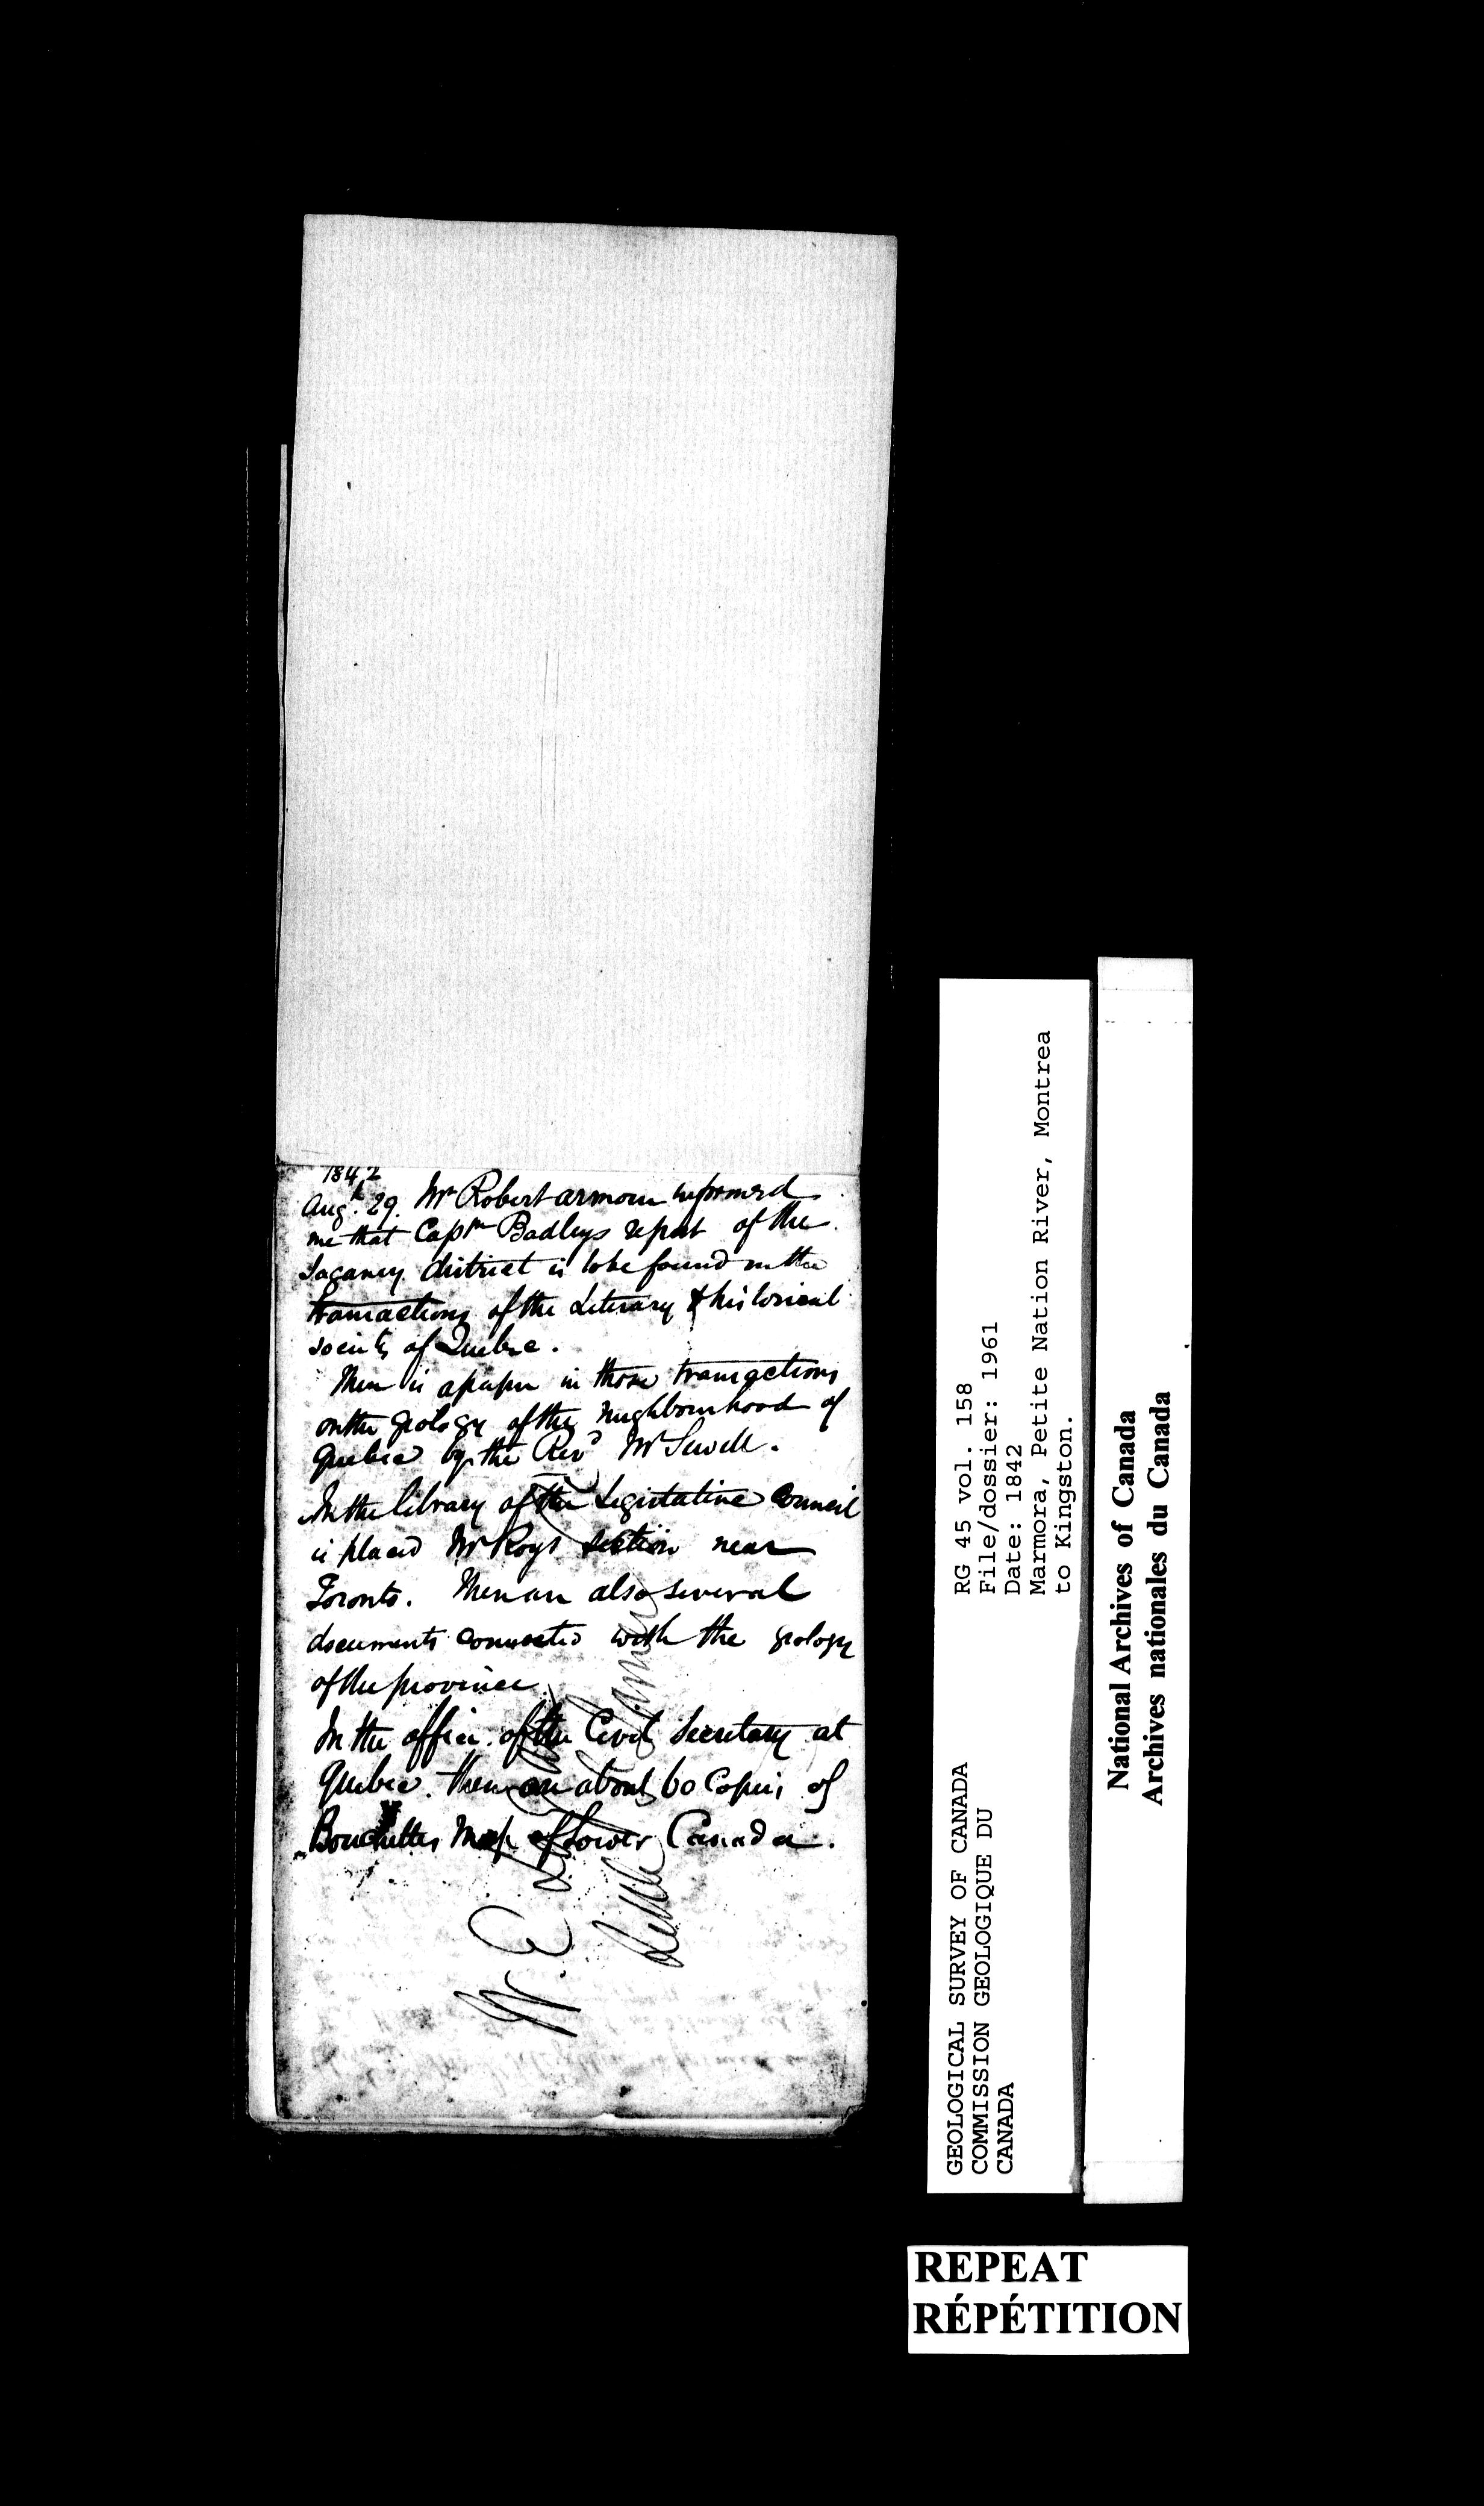 1842
Augt 29. Mr Robert Armour informed
me that Captn Badleys report of the
Sagany district is to be found in the
transactions of the Literary & historical
society of Quebec.
There is a paper in those transactions
on the geology of the neighbourhood of
Quebec by the Revd Mr Sewell.
In the library of the Legislative Council
is placed Mr Roys section near
Toronto. There are also several
documents connected with the geology
of the province
In the office of the Civil Secretary at
Quebec. there are about 60 Copies of
Bouchettes Map of Lower Canada.
W. E.
GEOLOGICAL SURVEY OF CANADA
COMMISSION GEOLOGIQUE DU
CANADA
RG 45 vol. 158
File/dossier: 1961
Date: 1842
Marmora, Petite Nation River, Montrea
to Kingston.
National Archives of Canada
Archives nationales du Canada
REPEAT
RÉPÉTITION